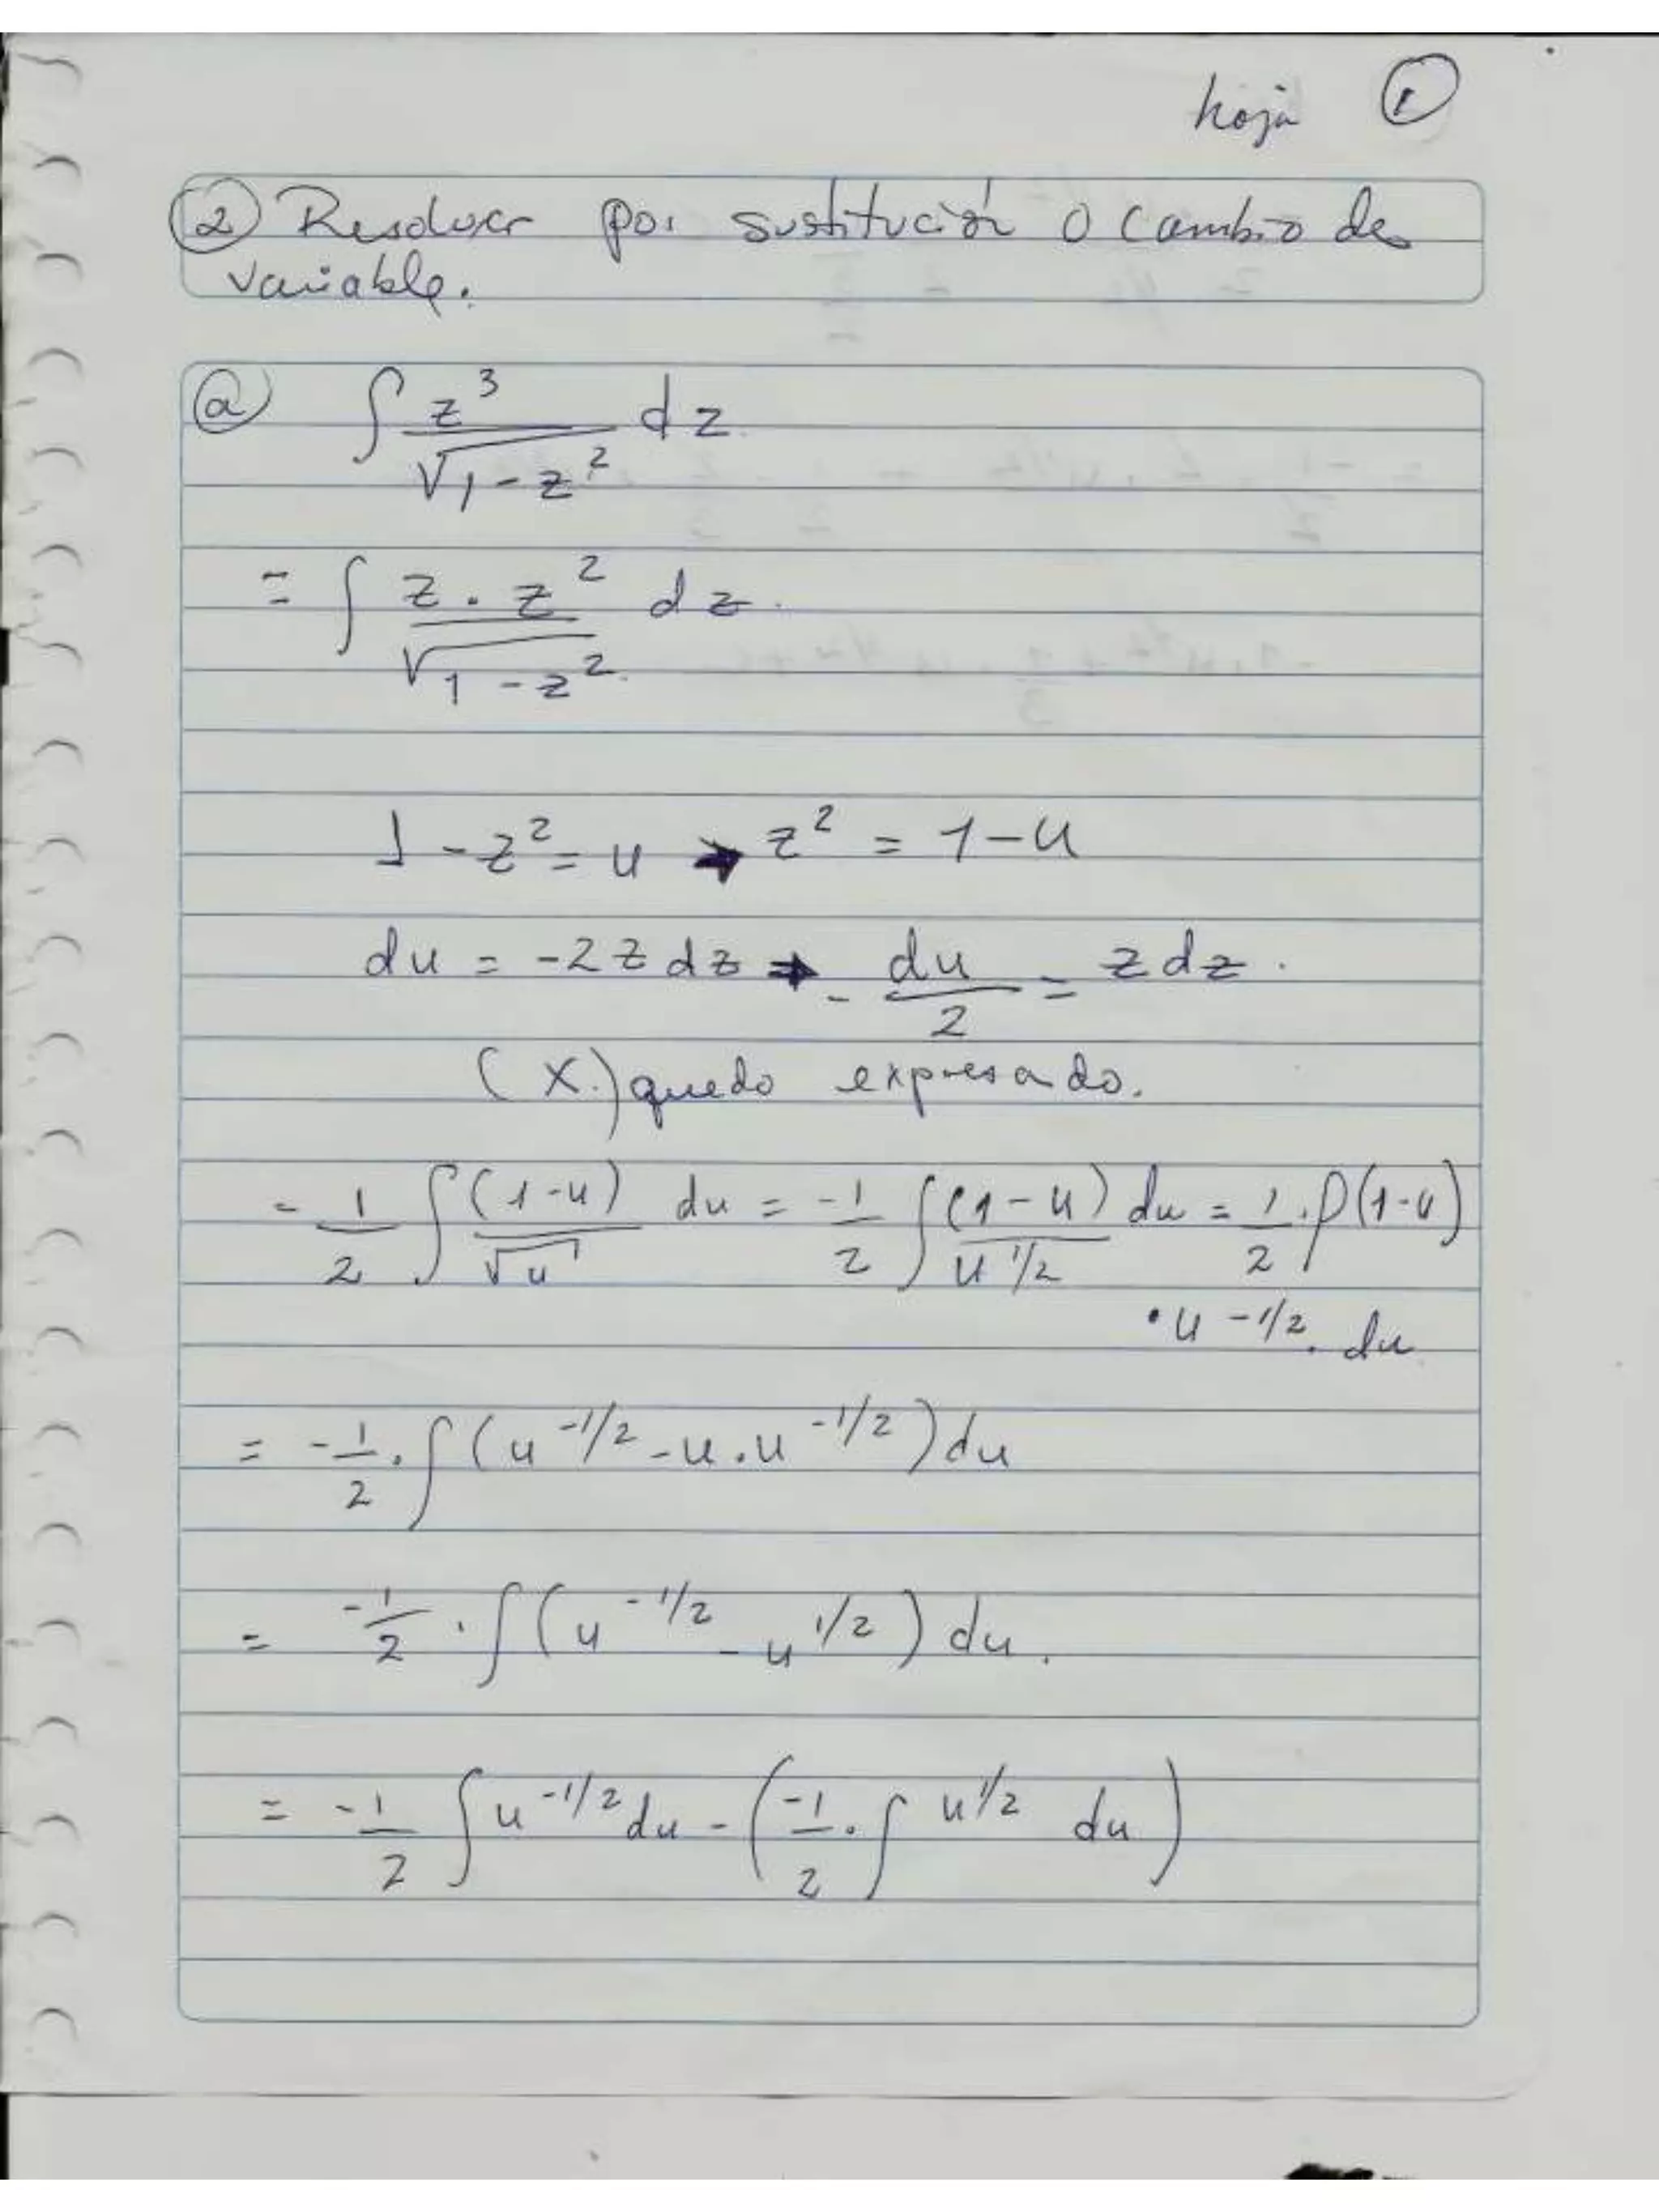 hoja ①
② Resolver por sustitución o cambio de
variable.
ⓐ ∫ z³/√(1-z²) dz
= ∫ z . z²/√(1-z²) dz.
1 - z² = u → z² = 1-u
du = -2z dz → -du/2 = z dz.
(x.) quedo expresado.
-1/2 ∫ (1-u)/√u du = -1/2 ∫ (1-u)/u^1/2 du = 1/2 . ∫(1-u)
. u^-1/2 . du
= -1/2 . ∫ (u^-1/2 - u . u^-1/2) du
= -1/2 . ∫ (u^-1/2 - u^1/2) du.
= -1/2 ∫ u^-1/2 du - (-1/2 . ∫ u^1/2 du)